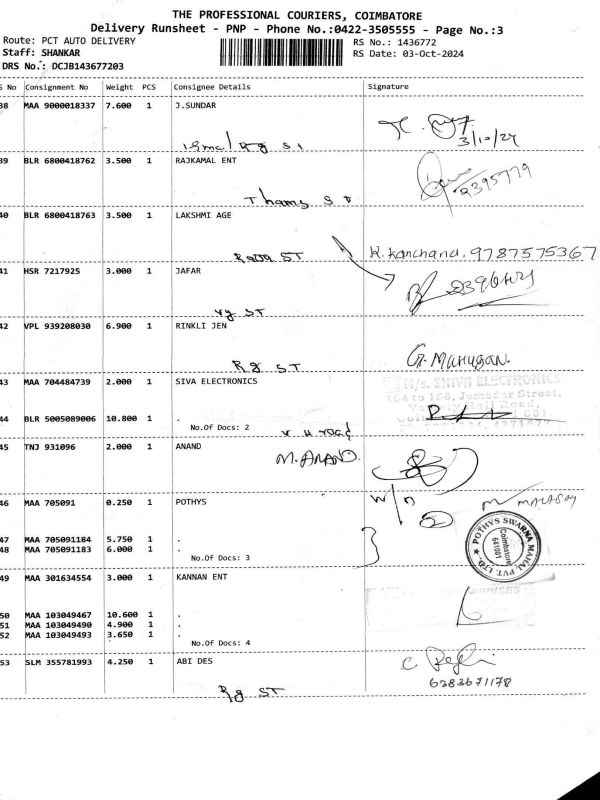 THE PROFESSIONAL COURIERS, COIMBATORE
Delivery Runsheet - PNP - Phone No.:0422-3505555 - Page No.:3
Route: PCT AUTO DELIVERY RS No.: 1436772
Staff: SHANKAR RS Date: 03-Oct-2024
DRS No.: DCJB143677203
S No Consignment No Weight PCS Consignee Details Signature
38 MAA 9000018337 7.600 1 J.SUNDAR
3/10/24
39 BLR 6800418762 3.500 1 RAJKAMAL ENT
Thams ST
40 BLR 6800418763 3.500 1 LAKSHMI AGE
Raja ST K.Kanchana. 9787575367
41 HSR 7217925 3.000 1 JAFAR
Vy ST
42 VPL 939208030 6.900 1 RINKLI JEN
Rg ST G. MURUGAN.
43 MAA 704484739 2.000 1 SIVA ELECTRONICS
M/s. SHIVA ELECTRONICS
164 to 166, Jamedar Street,
44 BLR 5005089006 10.800 1 .
No.Of Docs: 2
road
45 TNJ 931096 2.000 1 ANAND
M. ANAND
46 MAA 705091 0.250 1 POTHYS
W/n
POTHYS SWARNA MAHAL PVT. LTD.
Coimbatore
641001
47 MAA 705091184 5.750 1 .
48 MAA 705091183 6.000 1 .
No.Of Docs: 3
49 MAA 301634554 3.000 1 KANNAN ENT
50 MAA 103049467 10.600 1 .
51 MAA 103049490 4.900 1 .
52 MAA 103049493 3.650 1 .
No.Of Docs: 4
53 SLM 355781993 4.250 1 ABI DES
6383671178
Rg ST